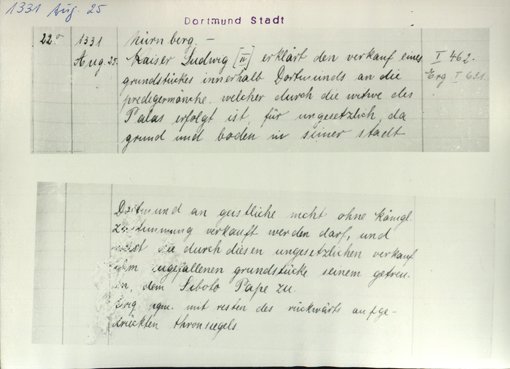 1331 Aug. 25
Dortmund Stadt
22ᵃ 1331 Nürnberg –
Aug. 25. Kaiser Ludwig [IV] erklärt den verkauf eines I 462.
grundstückes innerhalb Dortmunds an die Erg I 621.
predigermönche, welcher durch die witwe des
Palas erfolgt ist, für ungesetzlich, da
grund und boden in seiner stadt
Dortmund an geistliche nicht ohne königl.
zustimmung verkauft werden darf, und
die durch diesen ungesetzlichen verkauf
ihm zugefallenen grundstücke seinem getreu-
en, dem Seboto Pape zu
mit resten des rückwärts aufge-
drückten thronsiegels